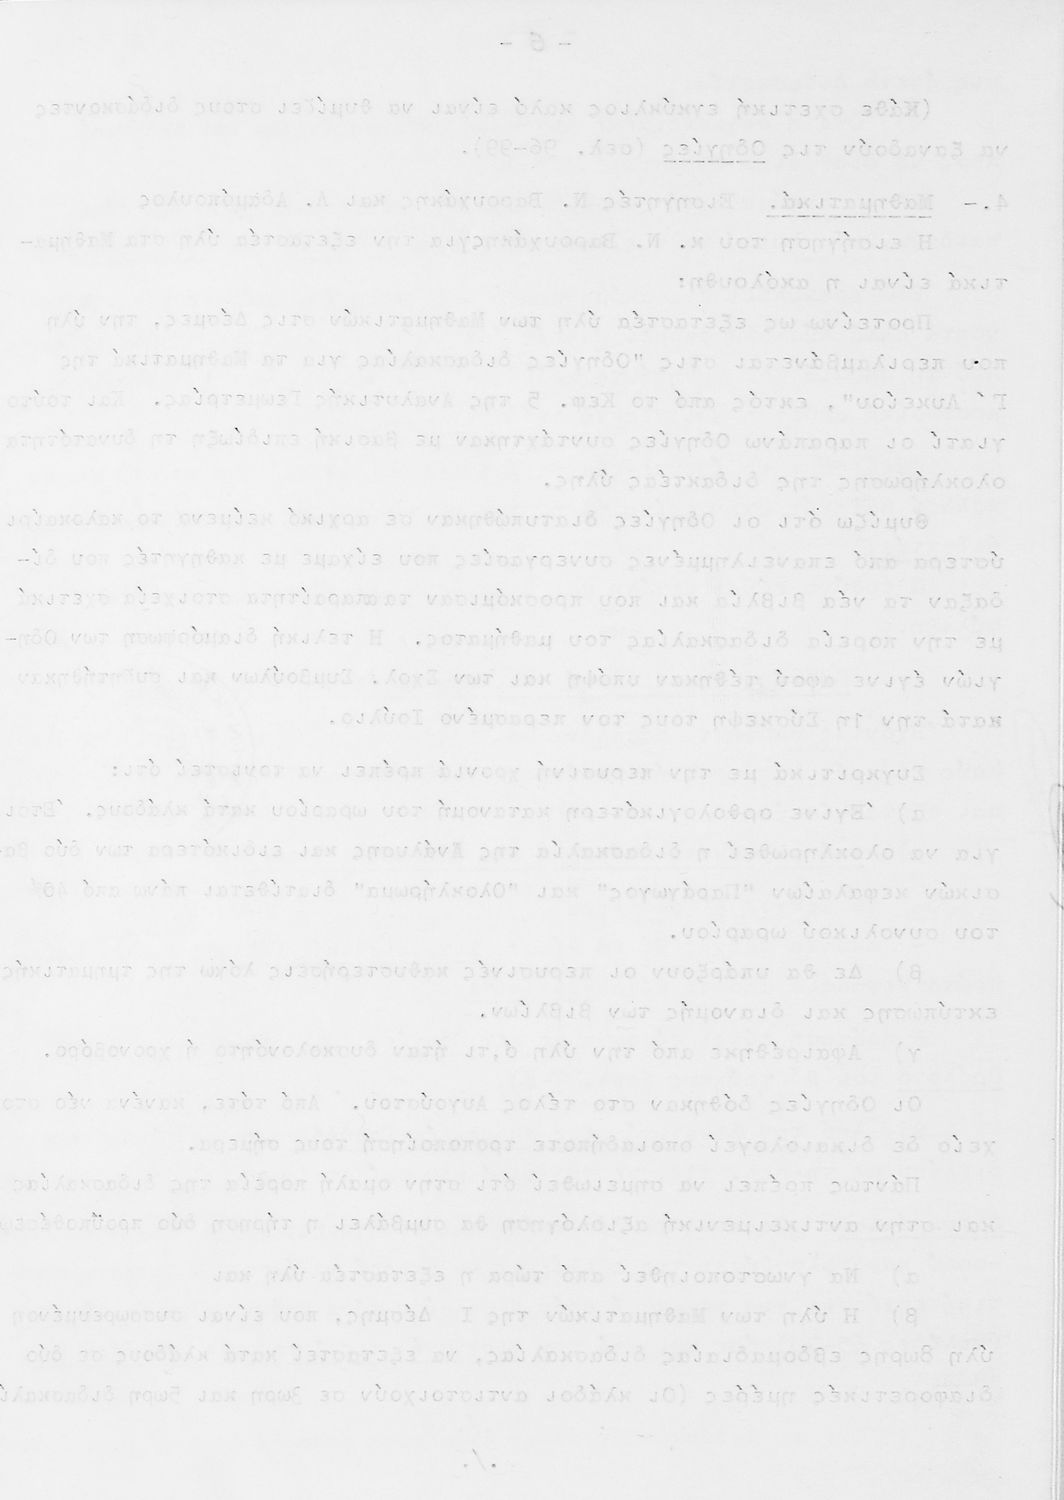 - 6 -
(Κάθε σχετική εγκύκλιος καλό είναι να θυμίζει στους διδάσκοντες
να ξαναδούν τις Οδηγίες (σελ. 96-99).
4.- Μαθηματικά. Εισηγητές Ν. Βαρουχάκης και Α. Αδαμόπουλος
Η εισήγηση του κ. Ν. Βαρουχάκηςγια την εξεταστέα ύλη στα Μαθημα-
τικά είναι η ακόλουθη:
Προτείνω ως εξεταστέα ύλη των Μαθηματικών στις Δέσμες, την ύλη
που περιλαμβάνεται στις "Οδηγίες διδασκαλίας για τα Μαθηματικά της
Γ΄ Λυκείου", εκτός από το Κεφ. 5 της Αναλυτικής Γεωμετρίας. Και τούτο
γιατί οι παραπάνω Οδηγίες συντάχτηκαν με βασική επιδίωξη τη δυνατότητα
ολοκλήρωσης της διδακτέας ύλης.
Θυμίζω ότι οι Οδηγίες διατυπώθηκαν σε αρχικό κείμενο το καλοκαίρι
ύστερα από επανειλημμένες συνεργασίες που είχαμε με καθηγητές που δί-
δαξαν τα νέα βιβλία και που προσκόμισαν τα απαραίτητα στοιχεία σχετικά
με την πορεία διδασκαλίας του μαθήματος. Η τελική διαμόρφωση των Οδη-
γιών έγινε αφού τέθηκαν υπόψη και των Σχολ. Συμβούλων και συζητήθηκαν
κατά την 1η Σύσκεψη τους τον περασμένο Ιούλιο.
Συγκριτικά με την περυσινή χρονιά πρέπει να τονιστεί ότι:
α) Έγινε ορθολογικότερη κατανομή του ωραρίου κατά κλάδους. Έτσι
για να ολοκληρωθεί η διδασκαλία της Ανάλυσης και ειδικότερα των δύο βα-
σικών κεφαλαίων "Παράγωγος" και "Ολοκλήρωμα" διατίθεται πάνω από 40%
του συνολικού ωραρίου.
β) Δε θα υπάρξουν οι περυσινές καθυστερήσεις λόγω της τμηματικής
εκτύπωσης και διανομής των βιβλίων.
γ) Αφαιρέθηκε από την ύλη ό,τι ήταν δυσκολονόητο ή χρονοβόρο.
Οι Οδηγίες δόθηκαν στο τέλος Αυγούστου. Από τότε, κανένα νέο στο
χείο δε δικαιολογεί οποιαδήποτε τροποποίησή τους σήμερα.
Πάντως πρέπει να σημειωθεί ότι στην ομαλή πορεία της διδασκαλίας
και στην αντικειμενική αξιολόγηση θα συμβάλει η τήρηση δύο προϋποθέσεω
α) Να γνωστοποιηθεί από τώρα η εξεταστέα ύλη και
β) Η ύλη των Μαθηματικών της Ι Δέσμης, που είναι συσσωρευμένη
ύλη 8ωρης εβδομαδιαίας διδασκαλίας, να εξεταστεί κατά κλάδους σε δύο
διαφορετικές ημέρες (Οι κλάδοι αντιστοιχούν σε 3ωρη και 5ωρη διδασκαλί
./.